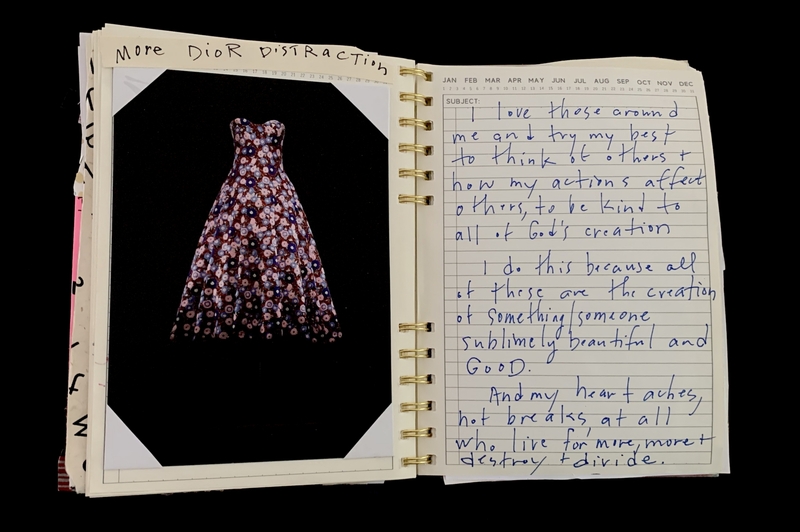 More DioR DISTRACTION
JAN FEB MAR APR MAY JUN JUL AUG SEP OCT NOV DEC
SUBJECT:
I love those around
me and try my best
to think of others +
how my actions affect
others, to be kind to
all of God's creation
I do this because all
of these are the creation
of something/someone
sublimely beautiful and
GOOD.
And my heart aches,
not breaks, at all
who live for more, more +
destroy + divide.